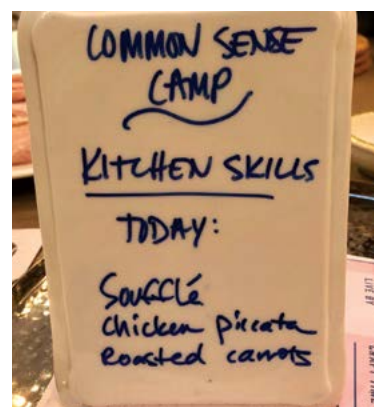 COMMON SENSE
CAMP
KITCHEN SKILLS
TODAY:
Soufflé
Chicken piccata
Roasted carrots